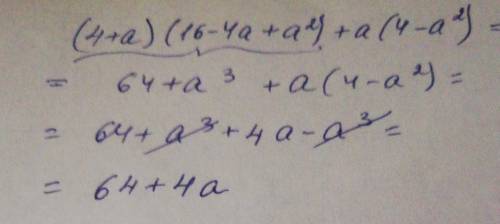 (4+a)(16-4a+a²)+a(4-a²)=
= 64+a³ +a(4-a²)=
= 64+a³+4a-a³=
= 64+4a